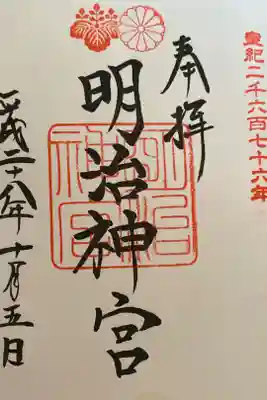 皇紀二千六百七十六年
奉拝
明治神宮
明治神宮
平成二十八年十月五日